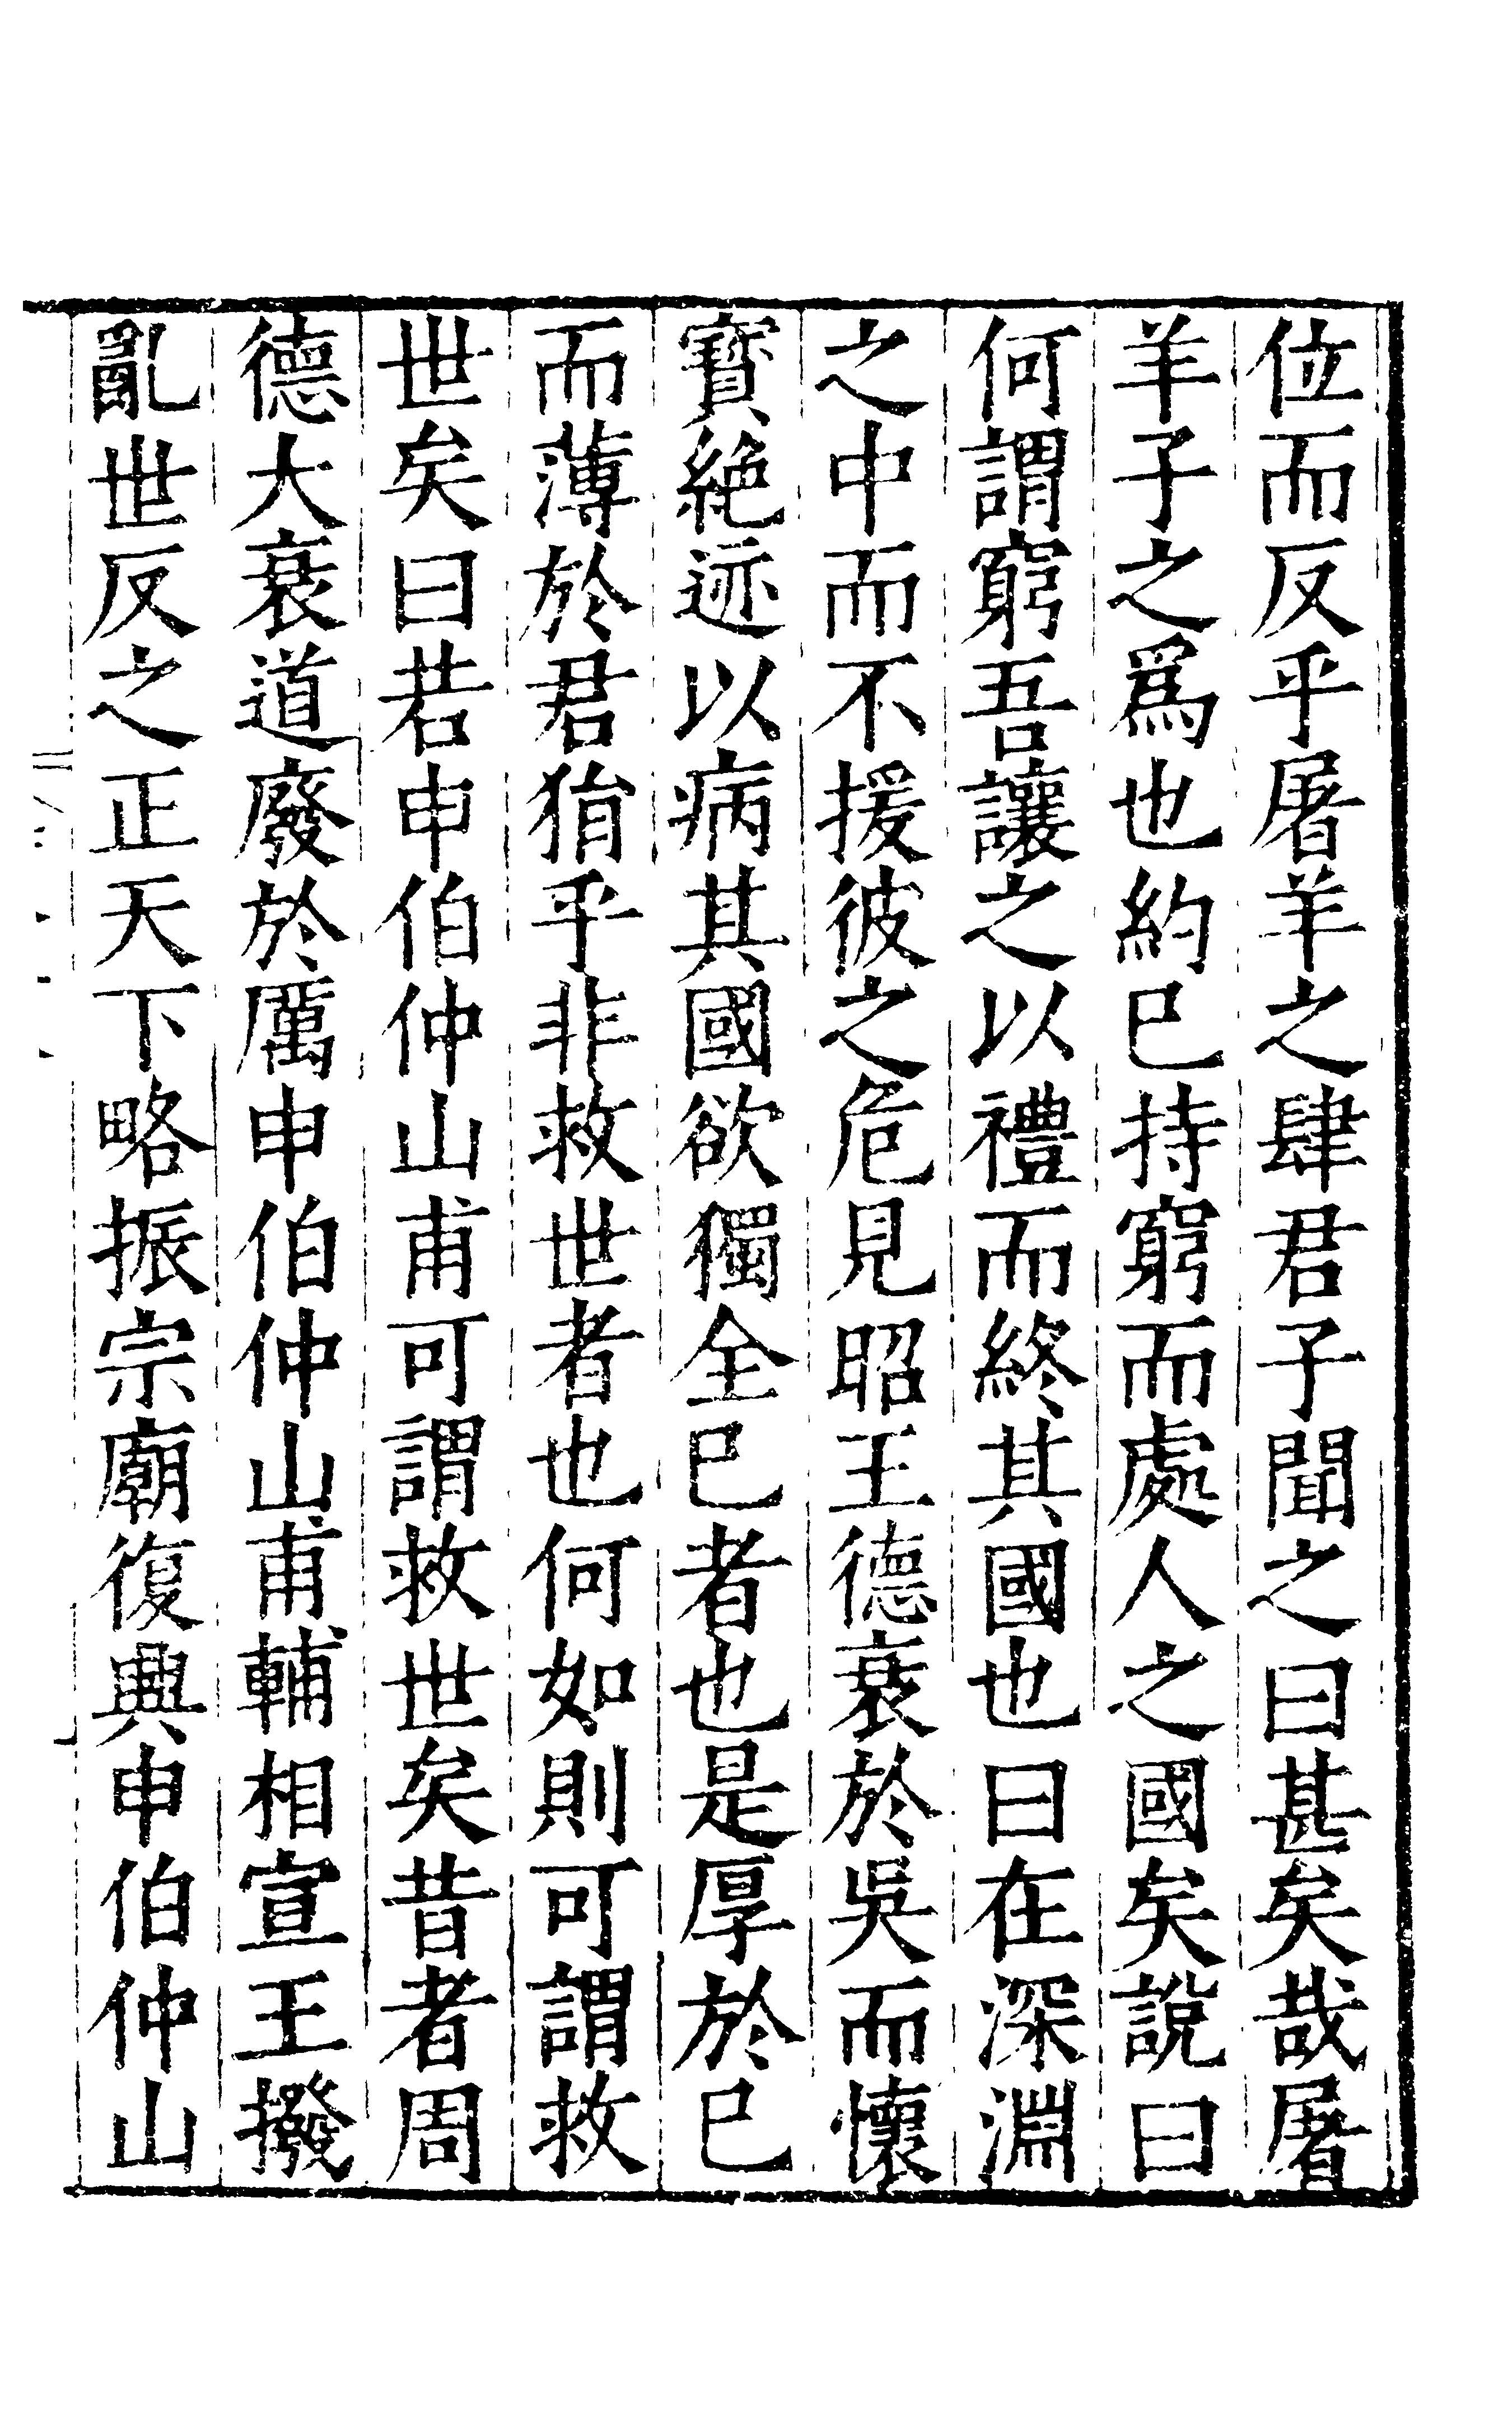 位而反乎屠羊之肆君子聞之曰甚矣哉屠
羊子之爲也約己持窮而處人之國矣說曰
何謂窮吾讓之以禮而終其國也曰在深淵
之中而不援彼之危見昭王德衰於吳而懷
寳絶迹以病其國欲獨全己者也是厚於己
而薄於君狷乎非救世者也何如則可謂救
世矣曰若申伯仲山甫可謂救世矣昔者周
德大衰道廢於厲申伯仲山甫輔相宣王撥
亂世反之正天下略振宗廟復興申伯仲山